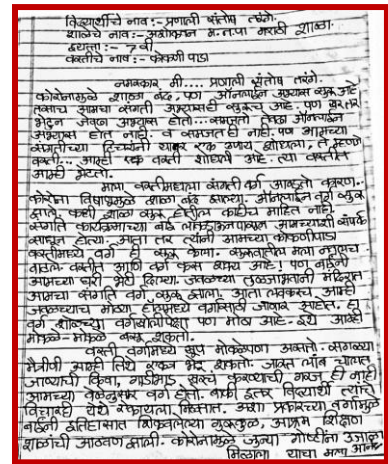 विद्यार्थीचे नाव :- प्रणाली संतोष तरंगे.
शाळेचे नाव :- अशोकवन म.न.पा मराठी शाळा.
इयत्ता :- 7 वी
वस्तीचे नाव :- कोकणी पाडा
नमस्कार मी.... प्रणाली संतोष तरंगे.
कोरोनामुळे शाळा बंद पण ऑनलाईन अभ्यास सुरू आहे
तसाच आमचा संगती अभ्यासही सुरूच आहे. पण खरंतर
भेटून जेवढा अभ्यास होतो... समजतो तेवढा ऑनलाईन
अभ्यास होत नाही. व समजतही नाही. पण आमच्या
संगतीच्या टिचरांनी यावर एक उपाय शोधला. ते म्हणजे
वस्ती... आम्ही एक वस्ती शोधली आहे. त्या वस्तीत
आम्ही भेटतो.
माझा वस्तीमधला संगती वर्ग आवडतो कारण..
कोरोना विषाणूमुळे शाळा बंद झाल्या. ऑनलाईन वर्ग सुरू
झाले. कधी शाळा सुरू होतील काहीच माहित नाही.
संगति कार्यक्रमाच्या बाई लॉकडाऊनपासून आमच्याशी संपर्क
साधून होत्या. आता तर त्यांनी आमच्या कोकणीपाडा
वस्तीमध्ये वर्ग ही सुरू केला. सुरुवातीला मला नवलच
वाटले. वस्तीत आणि वर्ग कसं शक्य आहे. पण बाईंनी
आमच्या घरी भेटी दिल्या. जवळच्या तुळजाभवानी मंदिरात
आमचा संगति वर्ग सुरू झाला. आता लवकरच आम्ही
जवळच्याच मोठ्या हॉलमध्ये वर्गासाठी जाणार आहोत. हा
वर्ग शाळेच्या वर्गखोलीपेक्षा पण मोठा आहे. इथे आम्ही
मोकळे-मोकळे बसू शकतो.
वस्ती वर्गामध्ये खूप मोकळेपणा असतो. सगळ्या
मैत्रीणी आम्ही तिथे एकत्र भेटू शकतो. जास्त लांब चालत
जाण्याची किंवा, गाडीभाडं खर्च करण्याची गरज ही नाही
आमच्या वेळेनुसार वर्ग होतो. बाकी इतर विद्यार्थी त्यांचे
विचारही येथे ऐकायला मिळतात. अशा प्रकारच्या वर्गामुळे
बाईंनी इतिहासात शिकवलेल्या गुरुकुल, आश्रम शिक्षण
शाळांची आठवण झाली. कोरोनामुळे जुन्या गोष्टींना उजाळा
मिळाला याचा मला आनंद